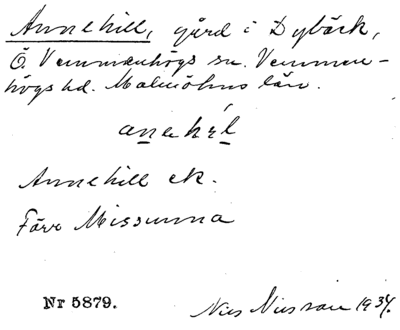 Annehill, gård i Dybäck,
Ö. Vemmenhögs sn. Vemmen-
högs hd. Malmöhus län.
anehil
Annehill ek.
Förr Missunna
Nr 5879.
Nils Nilsson 1934.